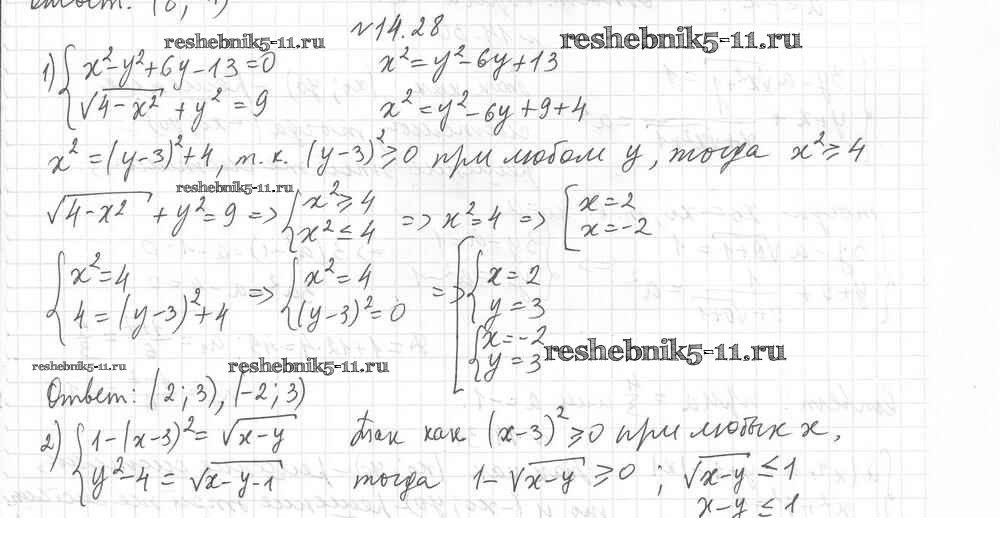 Ответ: (
№14.28
reshebnik5-11.ru reshebnik5-11.ru
1) { x²-y²+6y-13=0 x²=y²-6y+13
√(4-x²) + y² = 9 x²=y²-6y+9+4
x² = (y-3)²+4, т.к. (y-3)² ≥ 0 при любом y, тогда x² ≥ 4
reshebnik5-11.ru
√(4-x²) + y² = 9 => { x² ≥ 4 x² ≤ 4 => x² = 4 => [ x = 2 x = -2
{ x² = 4 4 = (y-3)²+4 => { x² = 4 (y-3)² = 0 => [ { x = 2 y = 3 { x = -2 y = 3
reshebnik5-11.ru reshebnik5-11.ru reshebnik5-11.ru
Ответ: (2; 3), (-2; 3)
2) { 1-(x-3)² = √(x-y) Так как (x-3)² ≥ 0 при любых x,
y²-4 = √(x-y-1) тогда 1-√(x-y) ≥ 0 ; √(x-y) ≤ 1
x-y ≤ 1